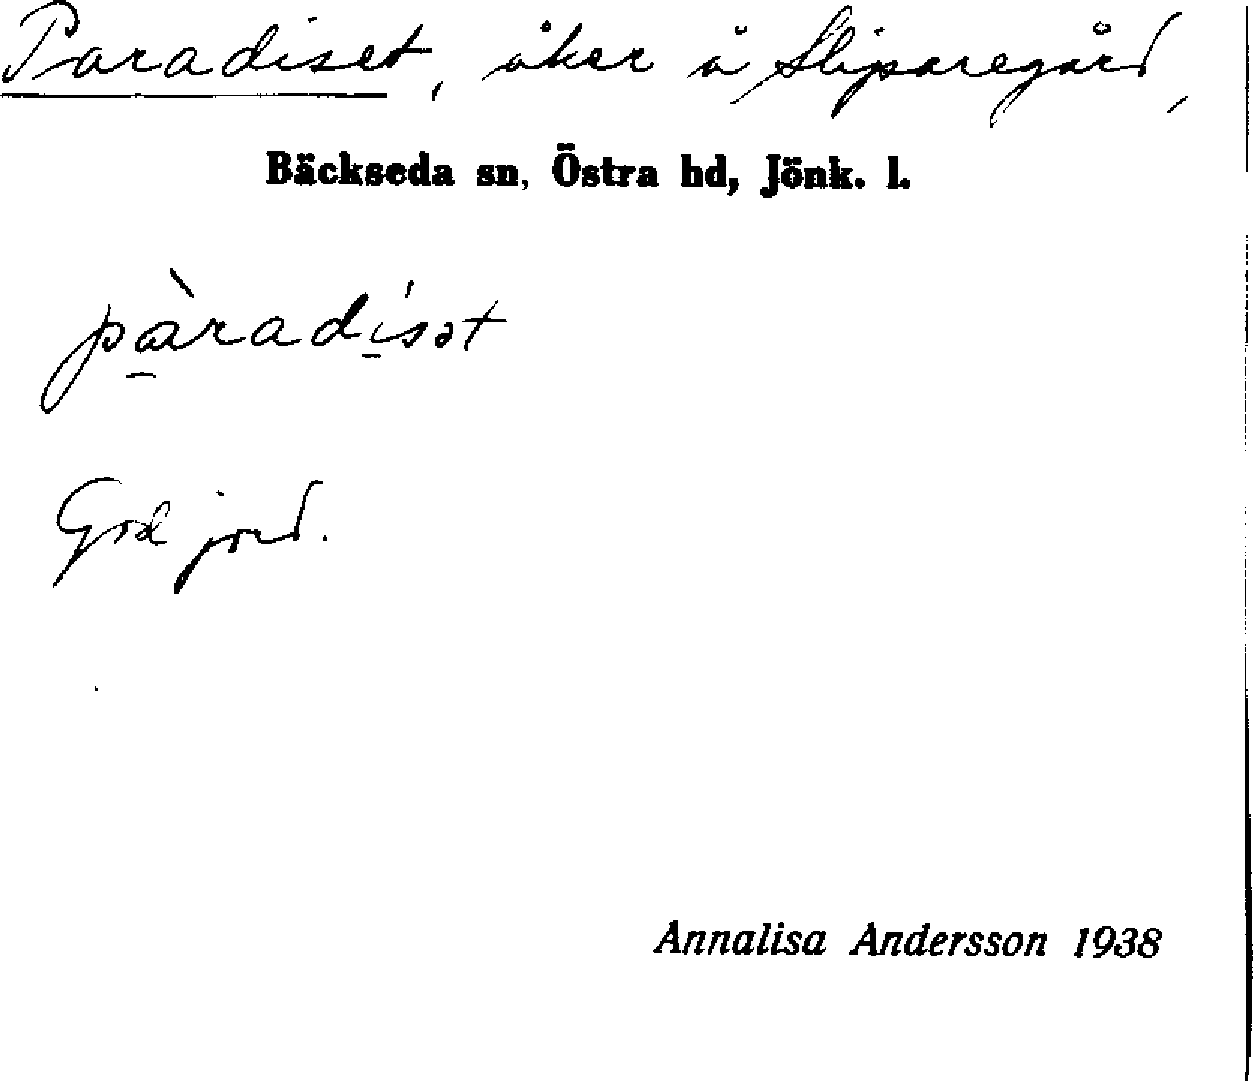 Paradiset, åker å Sliparegård,
Bäckseda sn, Östra hd, Jönk. l.
pàradísət
God jord.
Annalisa Andersson 1938